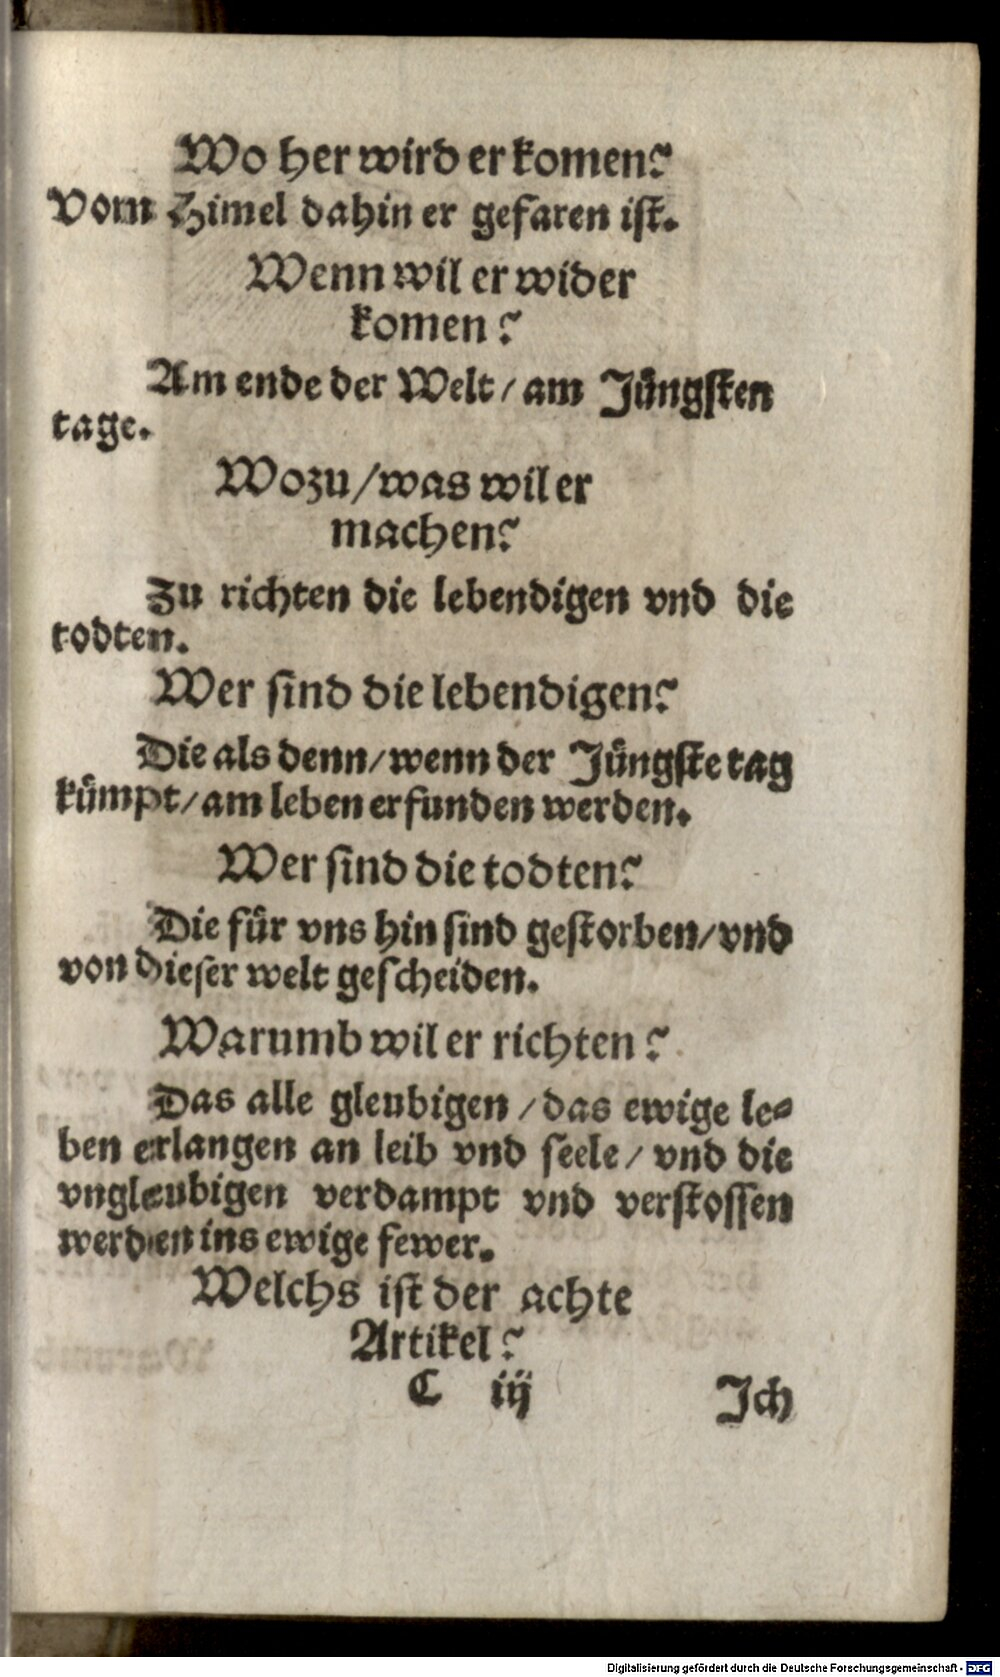 Wo her wird er komen?
Vom Himel dahin er gefaren ist.
Wenn wil er wider
komen?
Am ende der Welt / am Jüngsten
tage.
Wozu / was wil er
machen?
Zu richten die lebendigen vnd die
todten.
Wer sind die lebendigen?
Die als denn / wenn der Jüngste tag
kümpt / am leben erfunden werden.
Wer sind die todten?
Die für vns hin sind gestorben / vnd
von dieser welt gescheiden.
Warumb wil er richten?
Das alle gleubigen / das ewige le=
ben erlangen an leib vnd seele / vnd die
vngleubigen verdampt vnd verstossen
werden ins ewige fewer.
Welchs ist der achte
Artikel?
C iij Ich
Digitalisierung gefördert durch die Deutsche Forschungsgemeinschaft - DFG